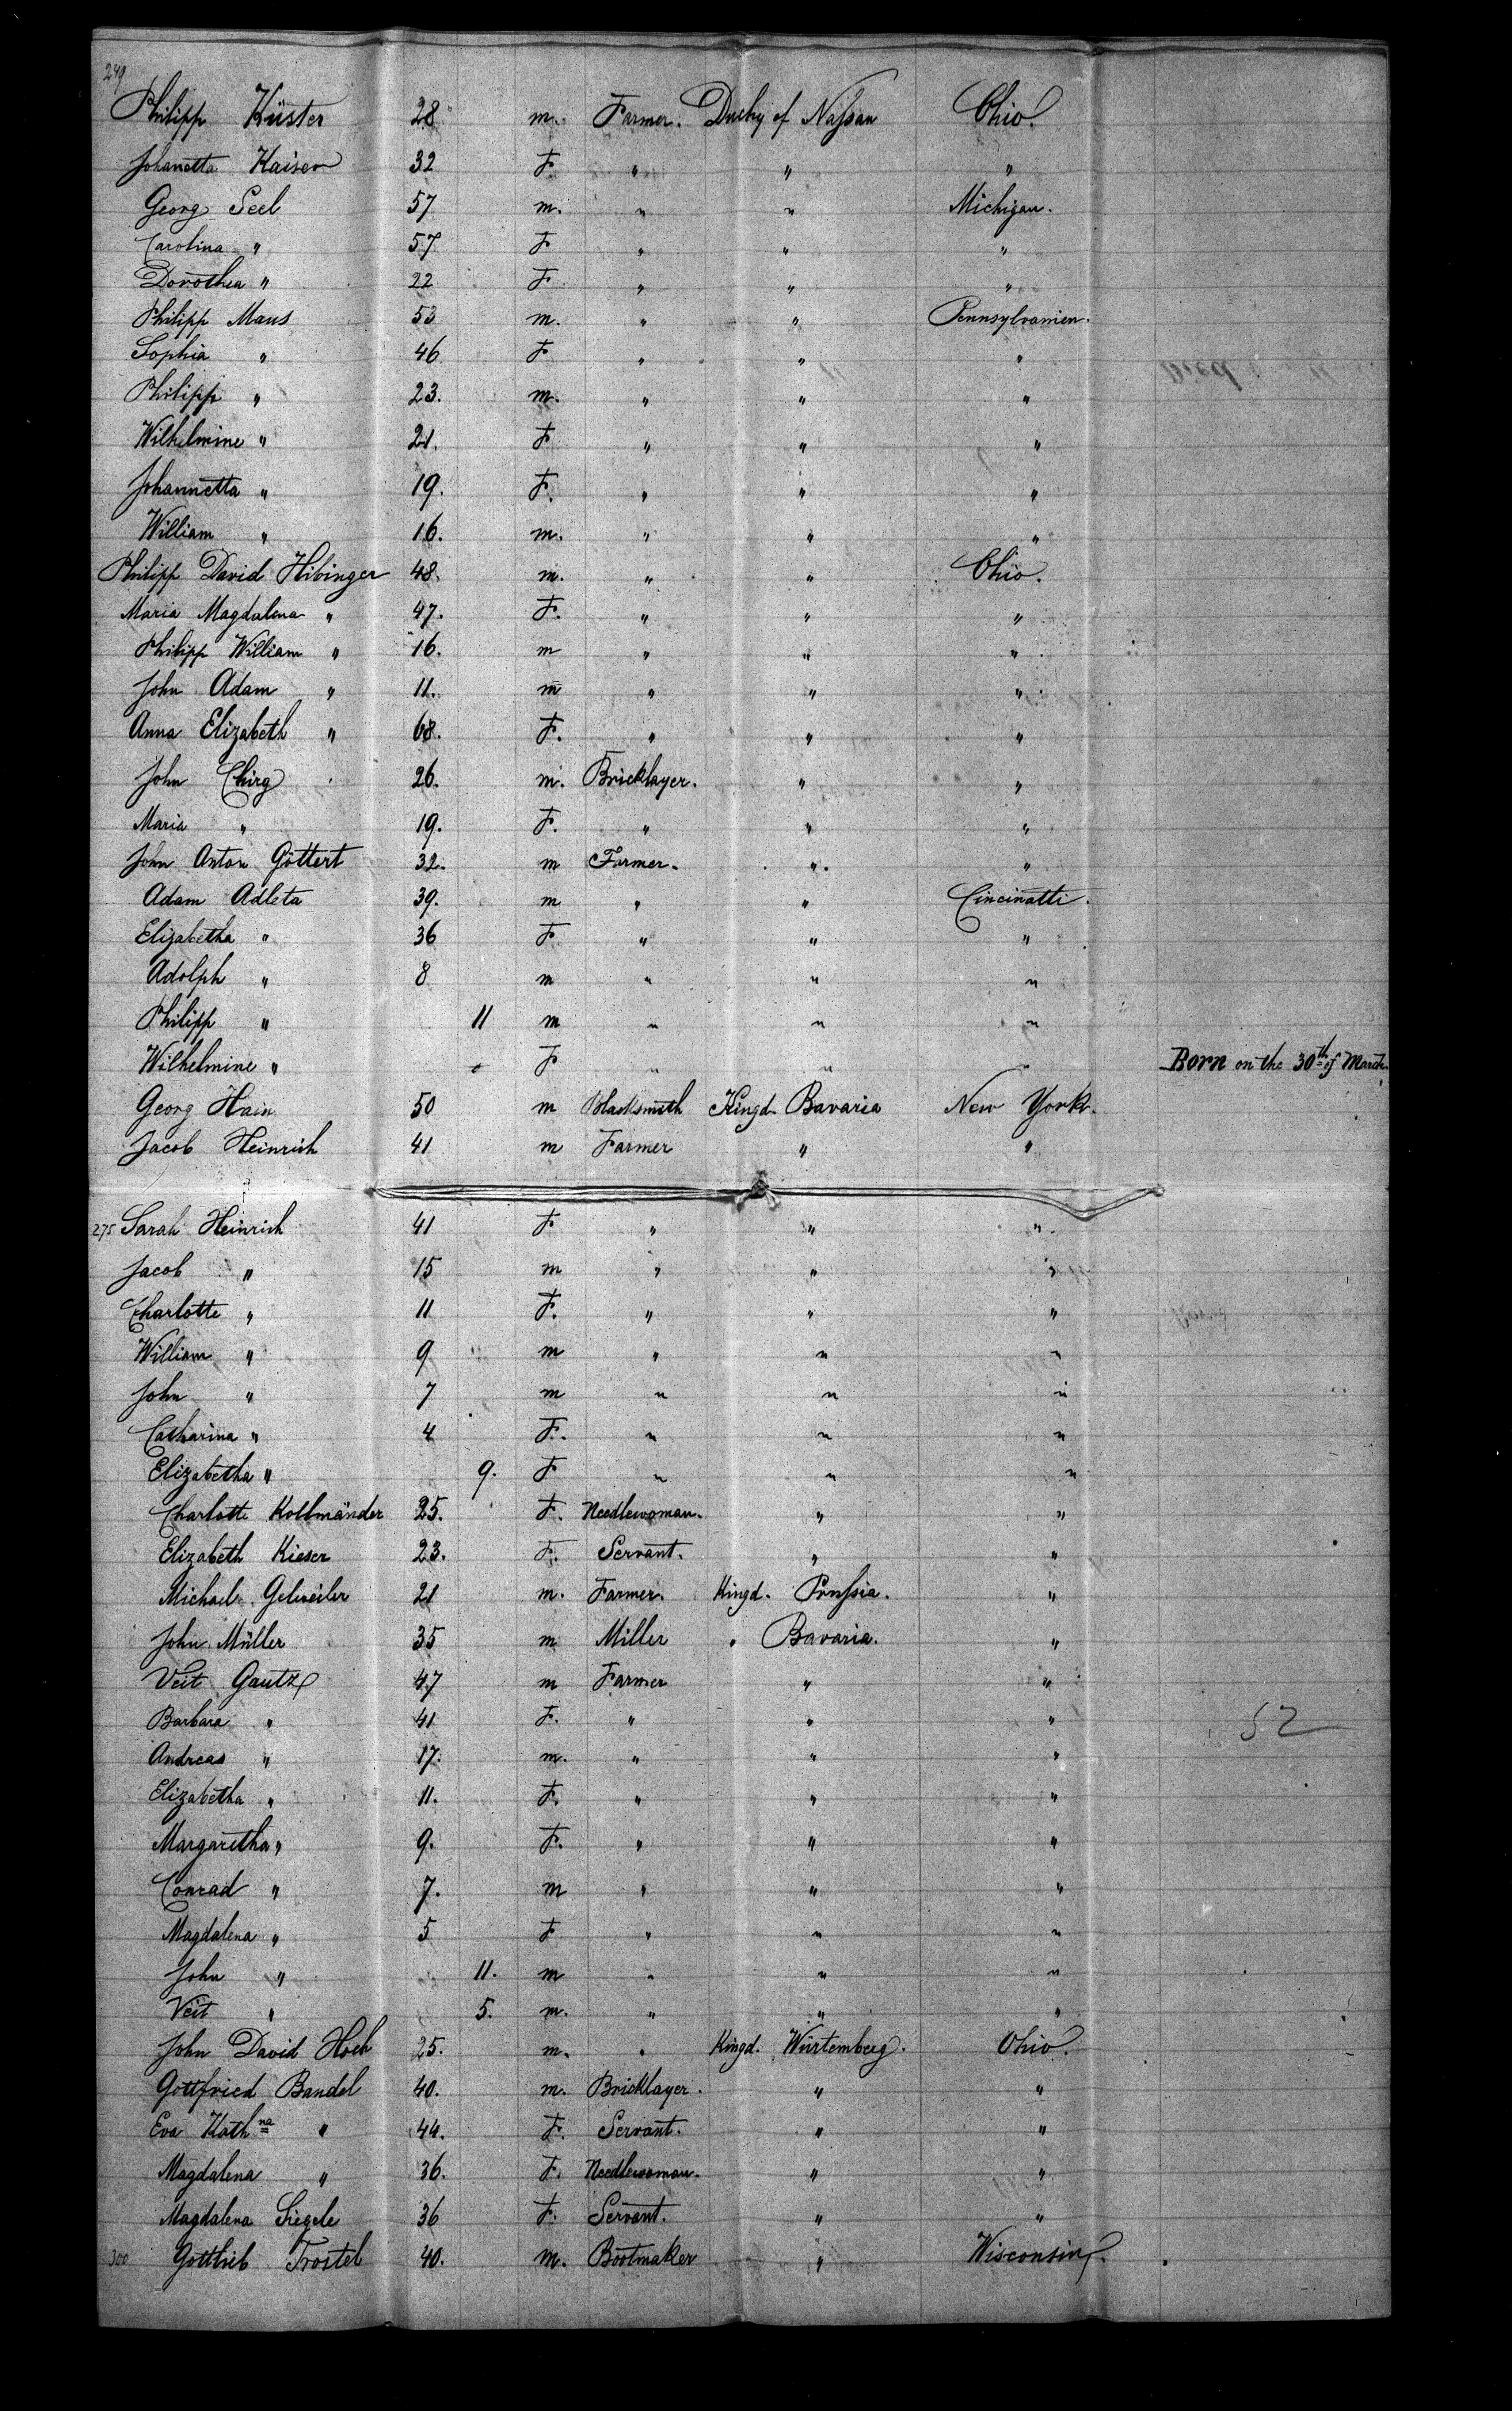 249
Philipp Küster 28 m. Farmer. Duchy of Nassau Ohio.
Johanetta Kaiser 32 F. " " "
Georg Seel 57 m. " " Michigan.
Carolina " 57 F " " "
Dorothea " 22 F. " " "
Philipp Maus 53 m. " " Pennsylvanien.
Sophia " 46 F " " "
Philipp " 23. m. " " "
Wilhelmine " 21. F " " "
Johannetta " 19. F. " " "
William " 16. m. " " "
Philipp David Hibinger 48. m. " " Ohio.
Maria Magdalena " 47. F. " " "
Philipp William " 16. m " " "
John Adam " 11. m " " "
Anna Elizabeth " 68. F. " " "
John Chirg 26. m. Bricklayer. " "
Maria " 19. F. " " "
John Anton Göttert 32. m Farmer. " "
Adam Adleta 39. m " " Cincinatti.
Elizabetha " 36 F. " " "
Adolph " 8 m " " "
Philipp " 11 m " " "
Wilhelmine " F " " " Born on the 30th of March.
Georg Hain 50 m Blacksmith Kingd. Bavaria New York.
Jacob Heinrich 41 m Farmer " "
275 Sarah Heinrich 41 F " " "
Jacob " 15 m " " "
Charlotte " 11 F. " " "
William " 9 m " " "
John " 7 m " " "
Catharina " 4 F. " " "
Elizabetha " 9. F " " "
Charlotte Kollmänder 25. F. Needlewoman. " "
Elizabeth Kieser 23. F. Servant. " "
Michael Gelweiler 21 m. Farmer. Kingd. Prussia. "
John Müller 35 m Miller " Bavaria. "
Veit Gautz 47 m Farmer " "
Barbara " 41 F. " " "
52
Andreas " 17. m. " " "
Elizabetha " 11. F. " " "
Margaretha " 9. F. " " "
Conrad " 7. m " " "
Magdalena " 5 F " " "
John " 11. m " " "
Veit " 5. m. " " "
John David Hoch 25. m. " Kingd. Würtemberg. Ohio.
Gottfried Bandel 40. m. Bricklayer. " "
Eva Kathna " 44. F. Servant. " "
Magdalena " 36. F. Needlewoman. " "
Magdalena Siegele 36 F. Servant. " "
300 Gottlieb Trostel 40. m. Bootmaker " Wisconsin.